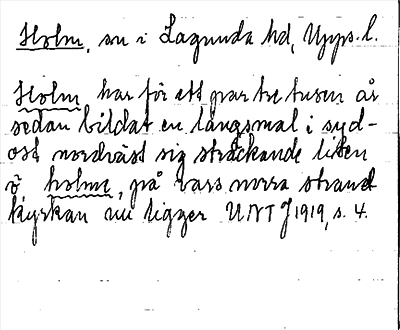 Holm, sn i Lagunda hd, Upps. l.
Holm har för ett par tre tusen år
sedan bildat en långsmal i syd-
ost nordväst sig sträckande liten
ö, holme, på vars norra strand
kyrkan nu ligger UNT J 1919, s. 4.